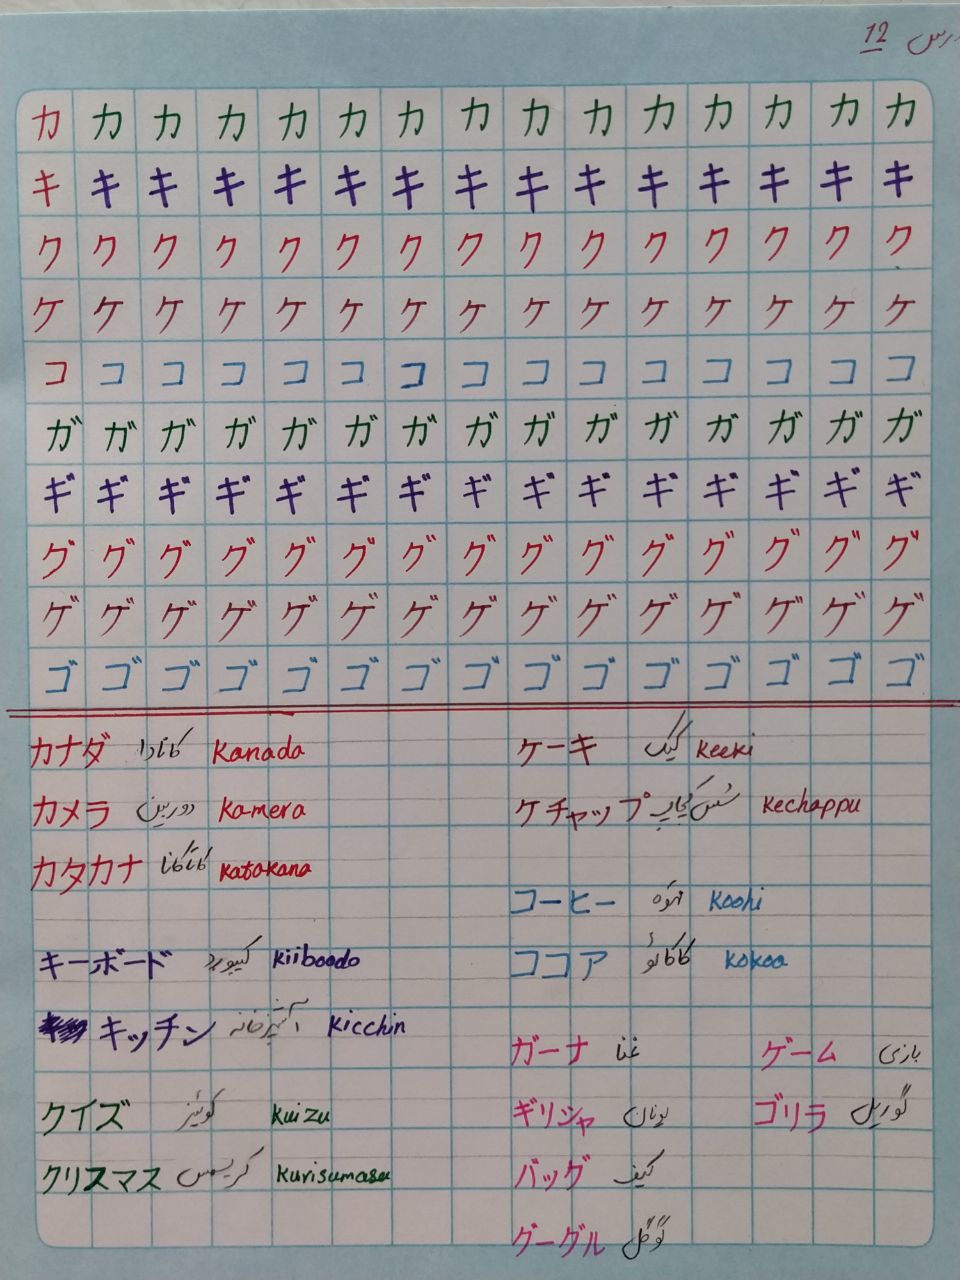 درس 12
カ カ カ カ カ カ カ カ カ カ カ カ カ カ カ
キ キ キ キ キ キ キ キ キ キ キ キ キ キ キ
ク ク ク ク ク ク ク ク ク ク ク ク ク ク ク
ケ ケ ケ ケ ケ ケ ケ ケ ケ ケ ケ ケ ケ ケ ケ
コ コ コ コ コ コ コ コ コ コ コ コ コ コ コ
ガ ガ ガ ガ ガ ガ ガ ガ ガ ガ ガ ガ ガ ガ ガ
ギ ギ ギ ギ ギ ギ ギ ギ ギ ギ ギ ギ ギ ギ ギ
グ グ グ グ グ グ グ グ グ グ グ グ グ グ グ
ゲ ゲ ゲ ゲ ゲ ゲ ゲ ゲ ゲ ゲ ゲ ゲ ゲ ゲ ゲ
ゴ ゴ ゴ ゴ ゴ ゴ ゴ ゴ ゴ ゴ ゴ ゴ ゴ ゴ ゴ
カナダ کانادا kanada
カメラ دوربین kamera
カタカナ کاتاکانا katakana
キーボード کیبورد kiiboodo
キッチン آشپزخانه kicchin
クイズ کوئیز kuizu
クリスマス کریسمس kurisumasu
ケーキ کیک keeki
ケチャップ سس کچاپ kechappu
コーヒー قهوه koohi
ココア کاکائو kokoa
ガーナ غنا
ギリシャ یونان
バッグ کیف
グーグル گوگل
ゲーム بازی
ゴリラ گوریل